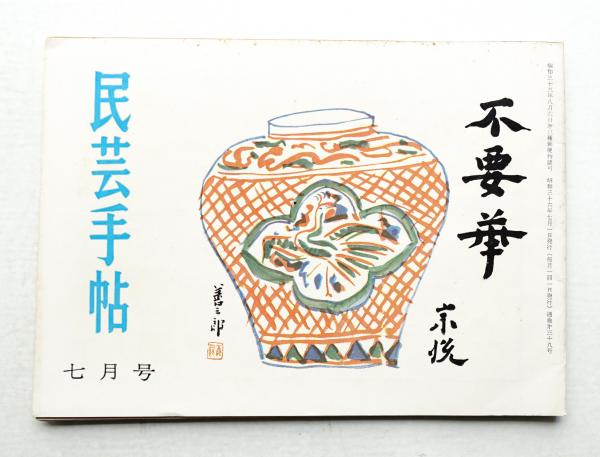 昭和三十三年八月六日第三種郵便物認可 昭和三十六年七月一日発行(毎月一回一日発行)通巻第三十八号
不要華
宗悦
善三郎
民芸手帖
七月号